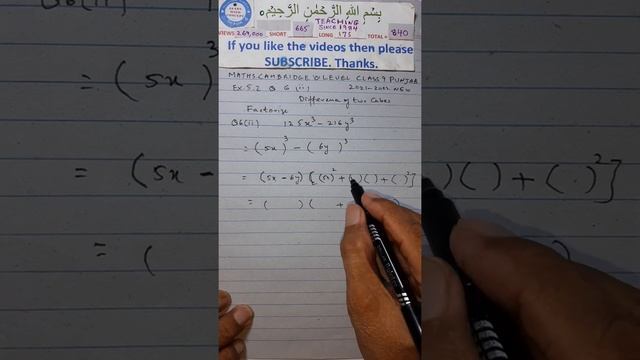 بِسْمِ اللهِ الرَّحْمٰنِ الرَّحِيْمِ
LEARN MATH
TEACHING
SINCE 1984
VIEWS 269,000 SHORT 665 LONG 175 TOTAL = 840
If you like the videos then please
SUBSCRIBE. Thanks.
MATHS. CAMBRIDGE 'O' LEVEL CLASS 9 PUNJAB
Ex. 5.2 Q 6 (ii) 2021-2022 NEW
Difference of two Cubes
Factorize
Q6(ii) 125x³ - 216y³
= (5x)³ - (6y)³
= (5x - 6y) [(5x)² + ( )( ) + ( )²]
= ( ) ( +